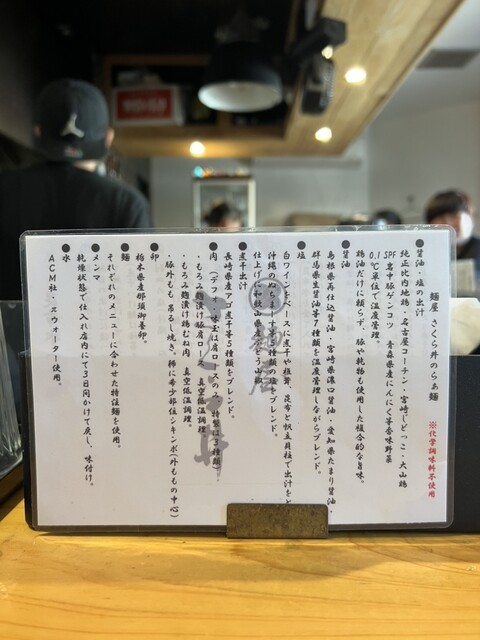 麺屋 さくら井のらぁ麺
※化学調味料不使用
●醤油・塩の出汁
純正比内地鶏・名古屋コーチン・宮崎しどっこ・大山鶏
SPF豊中豚ゲンコツ 青森県産にんにく等香味野菜
0.1℃単位で温度管理
鶏油だけに頼らず、豚や乾物も使用した複合的な旨味。
●醤油
島根県再仕込醤油・宮崎県濃口醤油・愛知県たまり醤油・
群馬県生醤油等7種類を温度管理しながらブレンド。
●塩
白ワインをベースに煮干や椎茸、昆布と帆立貝柱で出汁を
沖縄のぬちまーす等5種類の塩をブレンド。
仕上げに和歌山県産ぶどう山椒
●煮干出汁
長崎県産アゴ煮干等5種類をブレンド。
●肉
・もろみ麹漬け豚肩ロース 真空低温調理。
・もろみ麹漬け鶏むね肉 真空低温調理。
・豚外もも 吊るし焼き。稀に希少部位シキンボ(外ももの中心)
●卵
栃木県産那須御養卵。
●麺
それぞれのメニューに合わせた特注麺を使用。
●メンマ
乾燥状態で仕入れ店内にて3日間かけて戻し、味付け。
●水
ACM社・πウォーター使用。